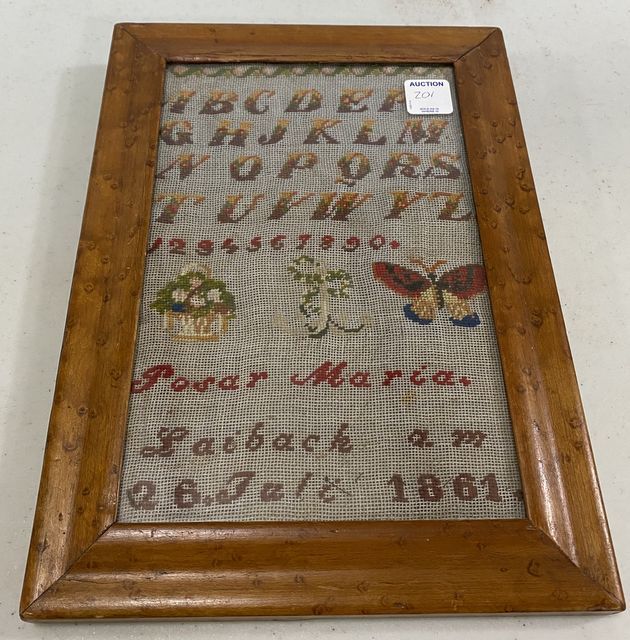 ABCDEF
GHIJKLM
NOPQRS
TUVWYZ
1234567890.
Posar Maria.
Laibach am
26. Juli 1861.
AUCTION
201